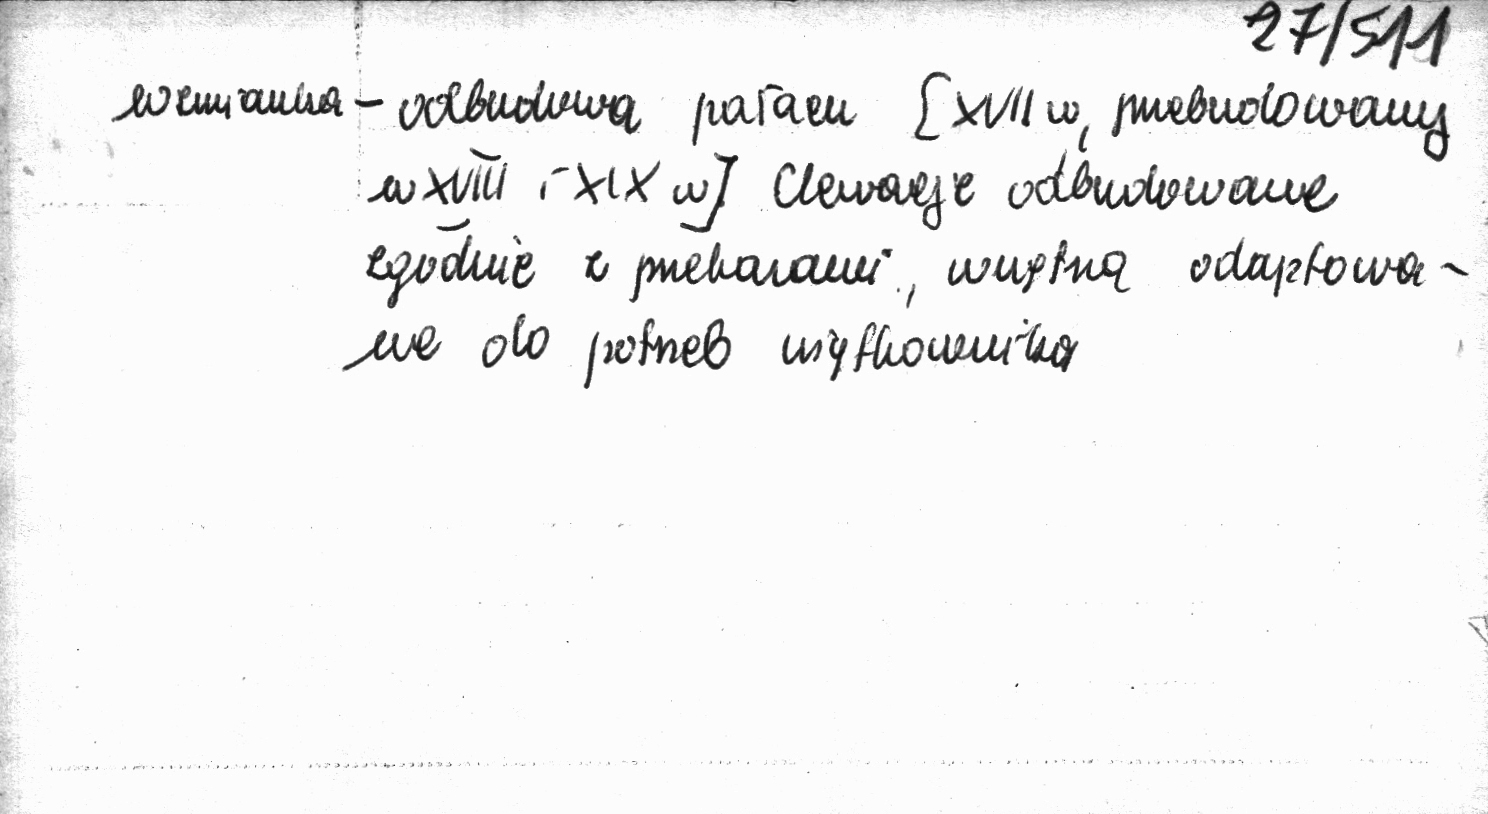 27/511
wzmianka - odbudowa pałacu [XVII w, przebudowany
w XVIII i XIX w] Elewacje odbudowane
zgodnie z przekazami, wnętrza adaptowa-
ne do potrzeb użytkownika